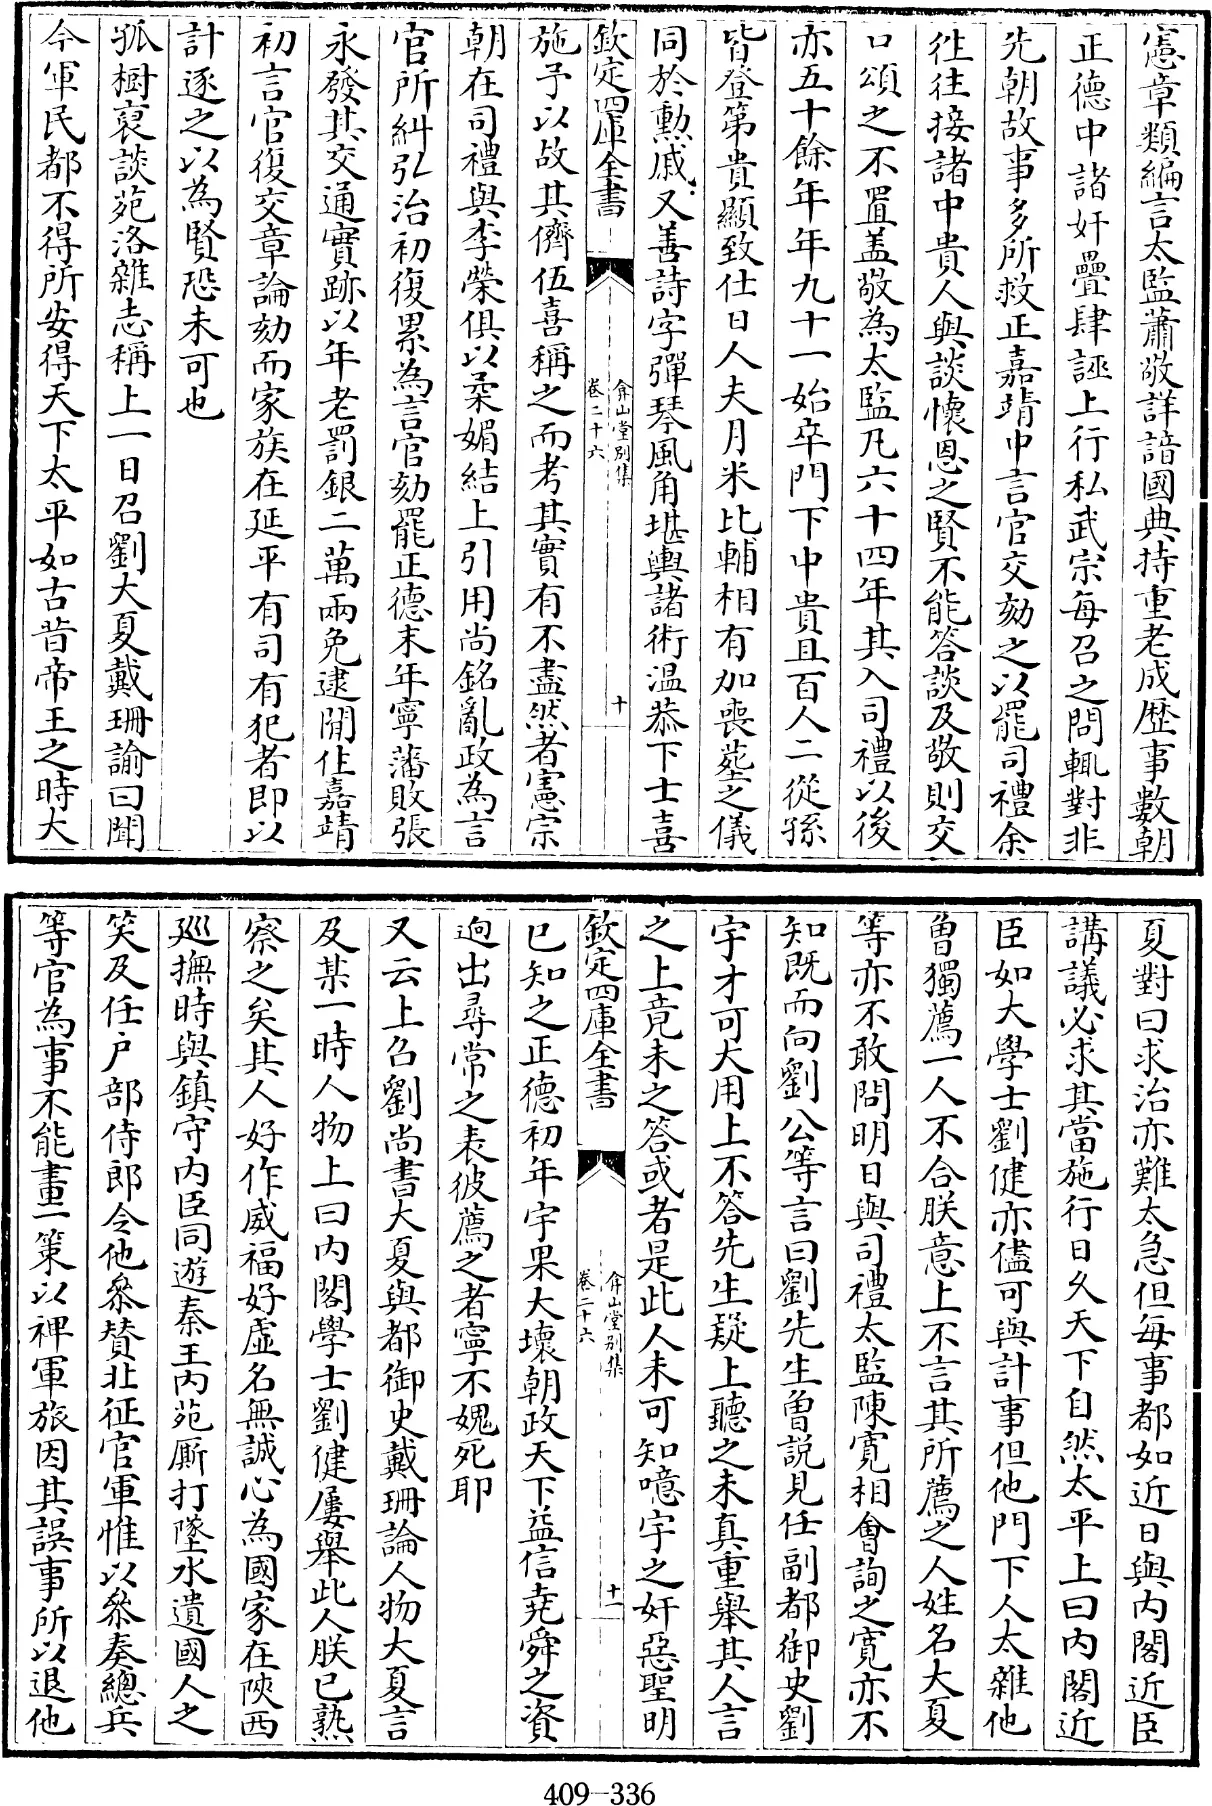 憲章類編言太監蕭敬詳諳國典持重老成歴事數朝
正德中諸奸疊肆誣上行私武宗每召之問輒對非
先朝故事多所救正嘉靖中言官交劾之以罷司禮余
徃徃接諸中貴人與談懷恩之賢不能答談及敬則交
口頌之不置盖敬為太監凡六十四年其入司禮以後
亦五十餘年年九十一始卒門下中貴且百人二從孫
皆登第貴顯致仕日人夫月米比輔相有加喪塟之儀
同於勲戚又善詩字彈琴風角堪輿諸術温恭下士喜
欽定四庫全書
弇山堂别集
卷二十六
十
施予以故其儕伍喜稱之而考其實有不盡然者憲宗
朝在司禮與李榮俱以柔媚結上引用尚銘亂政為言
官所糾弘治初復累為言官劾罷正德末年寧藩敗張
永發其交通實跡以年老罰銀二萬兩免逮閒住嘉靖
初言官復交章論劾而家族在延平有司有犯者即以
計逐之以為賢恐未可也
孤樹裒談苑洛雜志稱上一日召劉大夏戴珊諭曰聞
今軍民都不得所安得天下太平如古昔帝王之時大
夏對曰求治亦難太急但每事都如近日與内閣近臣
講議必求其當施行日久天下自然太平上曰内閣近
臣如大學士劉健亦儘可與計事但他門下人太雜他
曽獨薦一人不合朕意上不言其所薦之人姓名大夏
等亦不敢問明日與司禮太監陳寛相會詢之寛亦不
知既而向劉公等言曰劉先生曽説見任副都御史劉
宇才可大用上不答先生疑上聽之未真重舉其人言
之上竟未之答或者是此人未可知噫宇之奸惡聖明
欽定四庫全書
弇山堂别集
卷二十六
十一
已知之正德初年宇果大壞朝政天下益信堯舜之資
逈出尋常之表彼薦之者寧不媿死耶
又云上召劉尚書大夏與都御史戴珊論人物大夏言
及某一時人物上曰内閣學士劉健屢舉此人朕已熟
察之矣其人好作威福好虚名無誠心為國家在陜西
廵撫時與鎮守内臣同遊秦王内苑厮打墜水遺國人之
笑及任户部侍郎令他叅賛北征官軍惟以叅奏總兵
等官為事不能畫一策以裨軍旅因其誤事所以退他
409-336